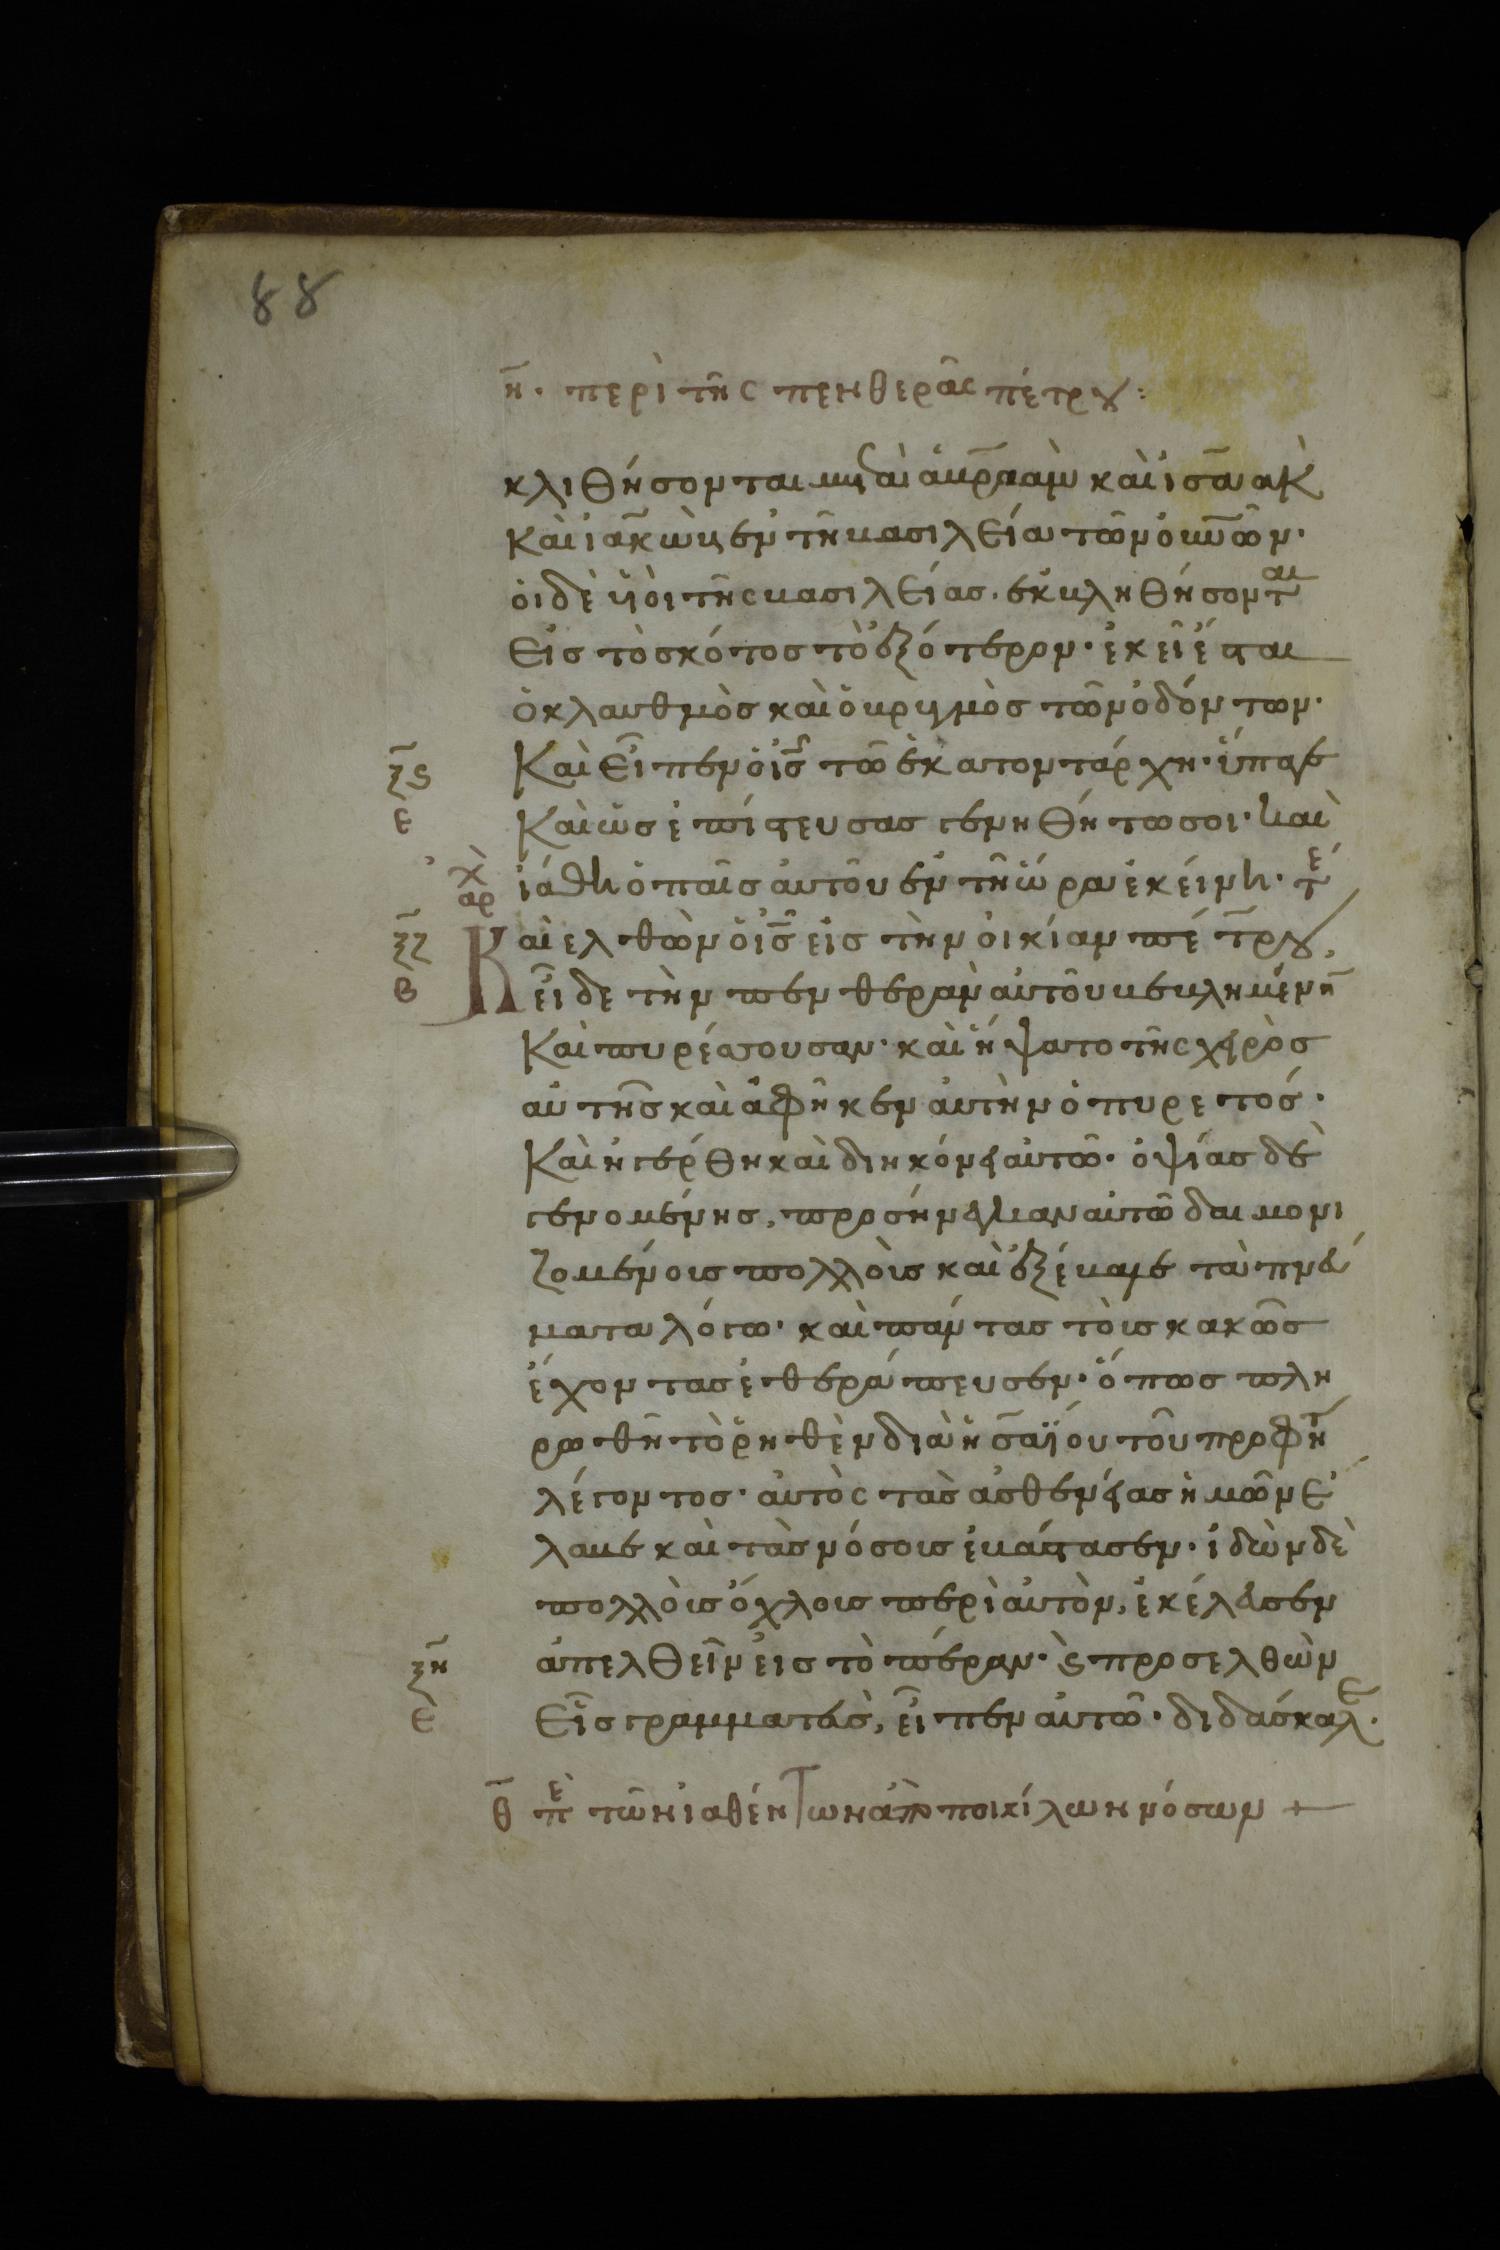 88
η̄. περὶ τῆς πενθερᾶς πέτρου:
κλιθήσονται μετὰ ἀβρ̄αὰμ καὶ ἰσ̄αὰκ
καὶ ἰακ̄ὼβ ἐν τῆ βασιλεία τῶν οὐν̄ῶν·
οἱ δὲ υἱοὶ τῆς βασιλείας· ἐκβληθήσονται
εἰς τὸ σκότος τὸ ἐξότερον· ἐκεῖ ἔσται
ὁ κλαυθμὸς καὶ ὁ βρυγμὸς τῶν ὀδόντων·
ξ̄ς καὶ εἶπεν ὁ ἰς̄ τῶ ἑκατοντάρχη· ὕπαγε
ε καὶ ὡς ἐπίστευσας γενηθήτω σοι· καὶ
ἀρχ ἰάθη ὁ παῖς αὐτοῦ ἐν τῆ ὥρα ἐκείνη· τέ
ξ̄ζ Καὶ ελθὼν ὁ ἰς̄ εἰς τὴν οἰκίαν πέτρου,
β εἶδε τὴν πενθερὰν αὐτοῦ βεβλημένην
καὶ πυρέσσουσαν· καὶ ἥψατο τῆς χειρὸς
αὐτῆς καὶ ἀφῆκεν αὐτὴν ὁ πυρετός·
καὶ ηγέρθη καὶ διηκόνει αὐτῶ· ὀψίας δὲ
γενομένης, προσήνεγκαν αὐτῶ δαιμονι
ζομένους πολλοὺς καὶ ἐξέβαλε τὰ πνεύ
ματα λόγω· καὶ πάντας τοὺς κακῶς
ἔχοντας ἐθεράπευσεν· ὅπως πλη
ρωθῆ τὸ ῥηθὲν διὰ ἡσ̄αΐου τοῦ προφήτ
λέγοντος· αὐτὸς τὰς ἀσθενείας ἡμῶν ἔ
λαβε καὶ τὰς νόσους ἐβάστασεν· ἰδὼν δὲ
πολλοὺς ὄχλους περὶ αὐτὸν, ἐκέλευσεν
ξ̄η ἀπελθεῖν εἰς τὸ πέραν· ϗ προσελθὼν
ε εἷς γραμματεὺς, εἶπεν αὐτῶ· διδάσκαλε·
θ̄ πε τῶν ἰαθέντων ἀπὸ ποικίλων νόσων +